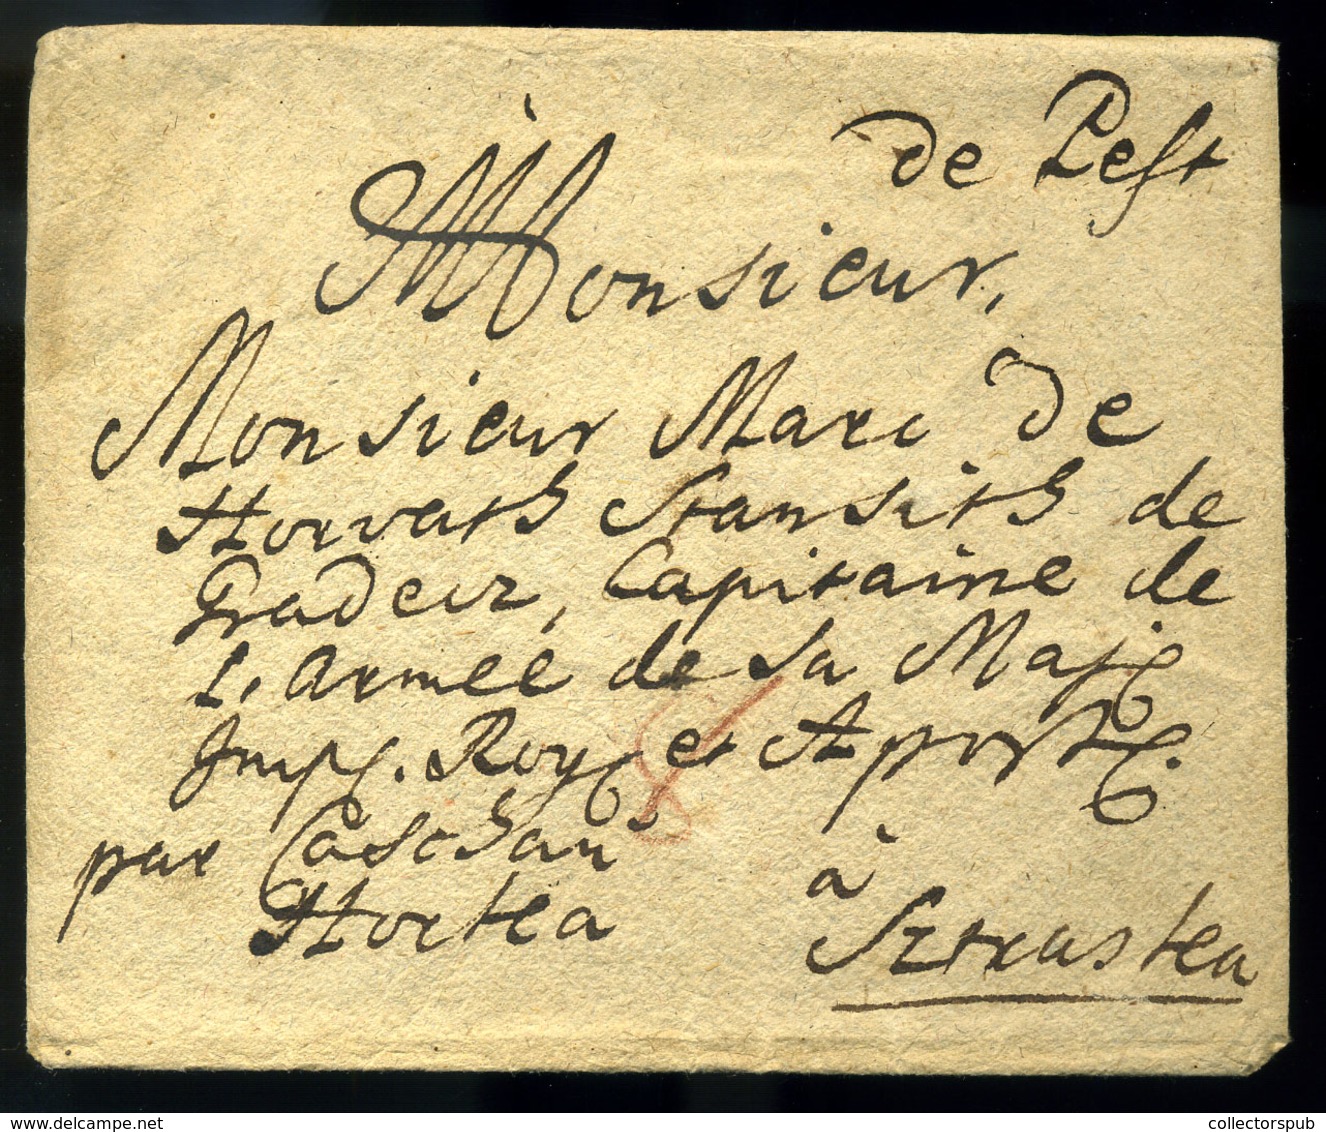 de Pest
Monsieur,
Monsieur Marc de
Horvath Stansith de
Gradecz, Capitaine de
L'Armée de Sa Maj
Imp. Roy et Apost.
par Caschau à
Horka Sztraska
www.delcampe.net
collectorspub